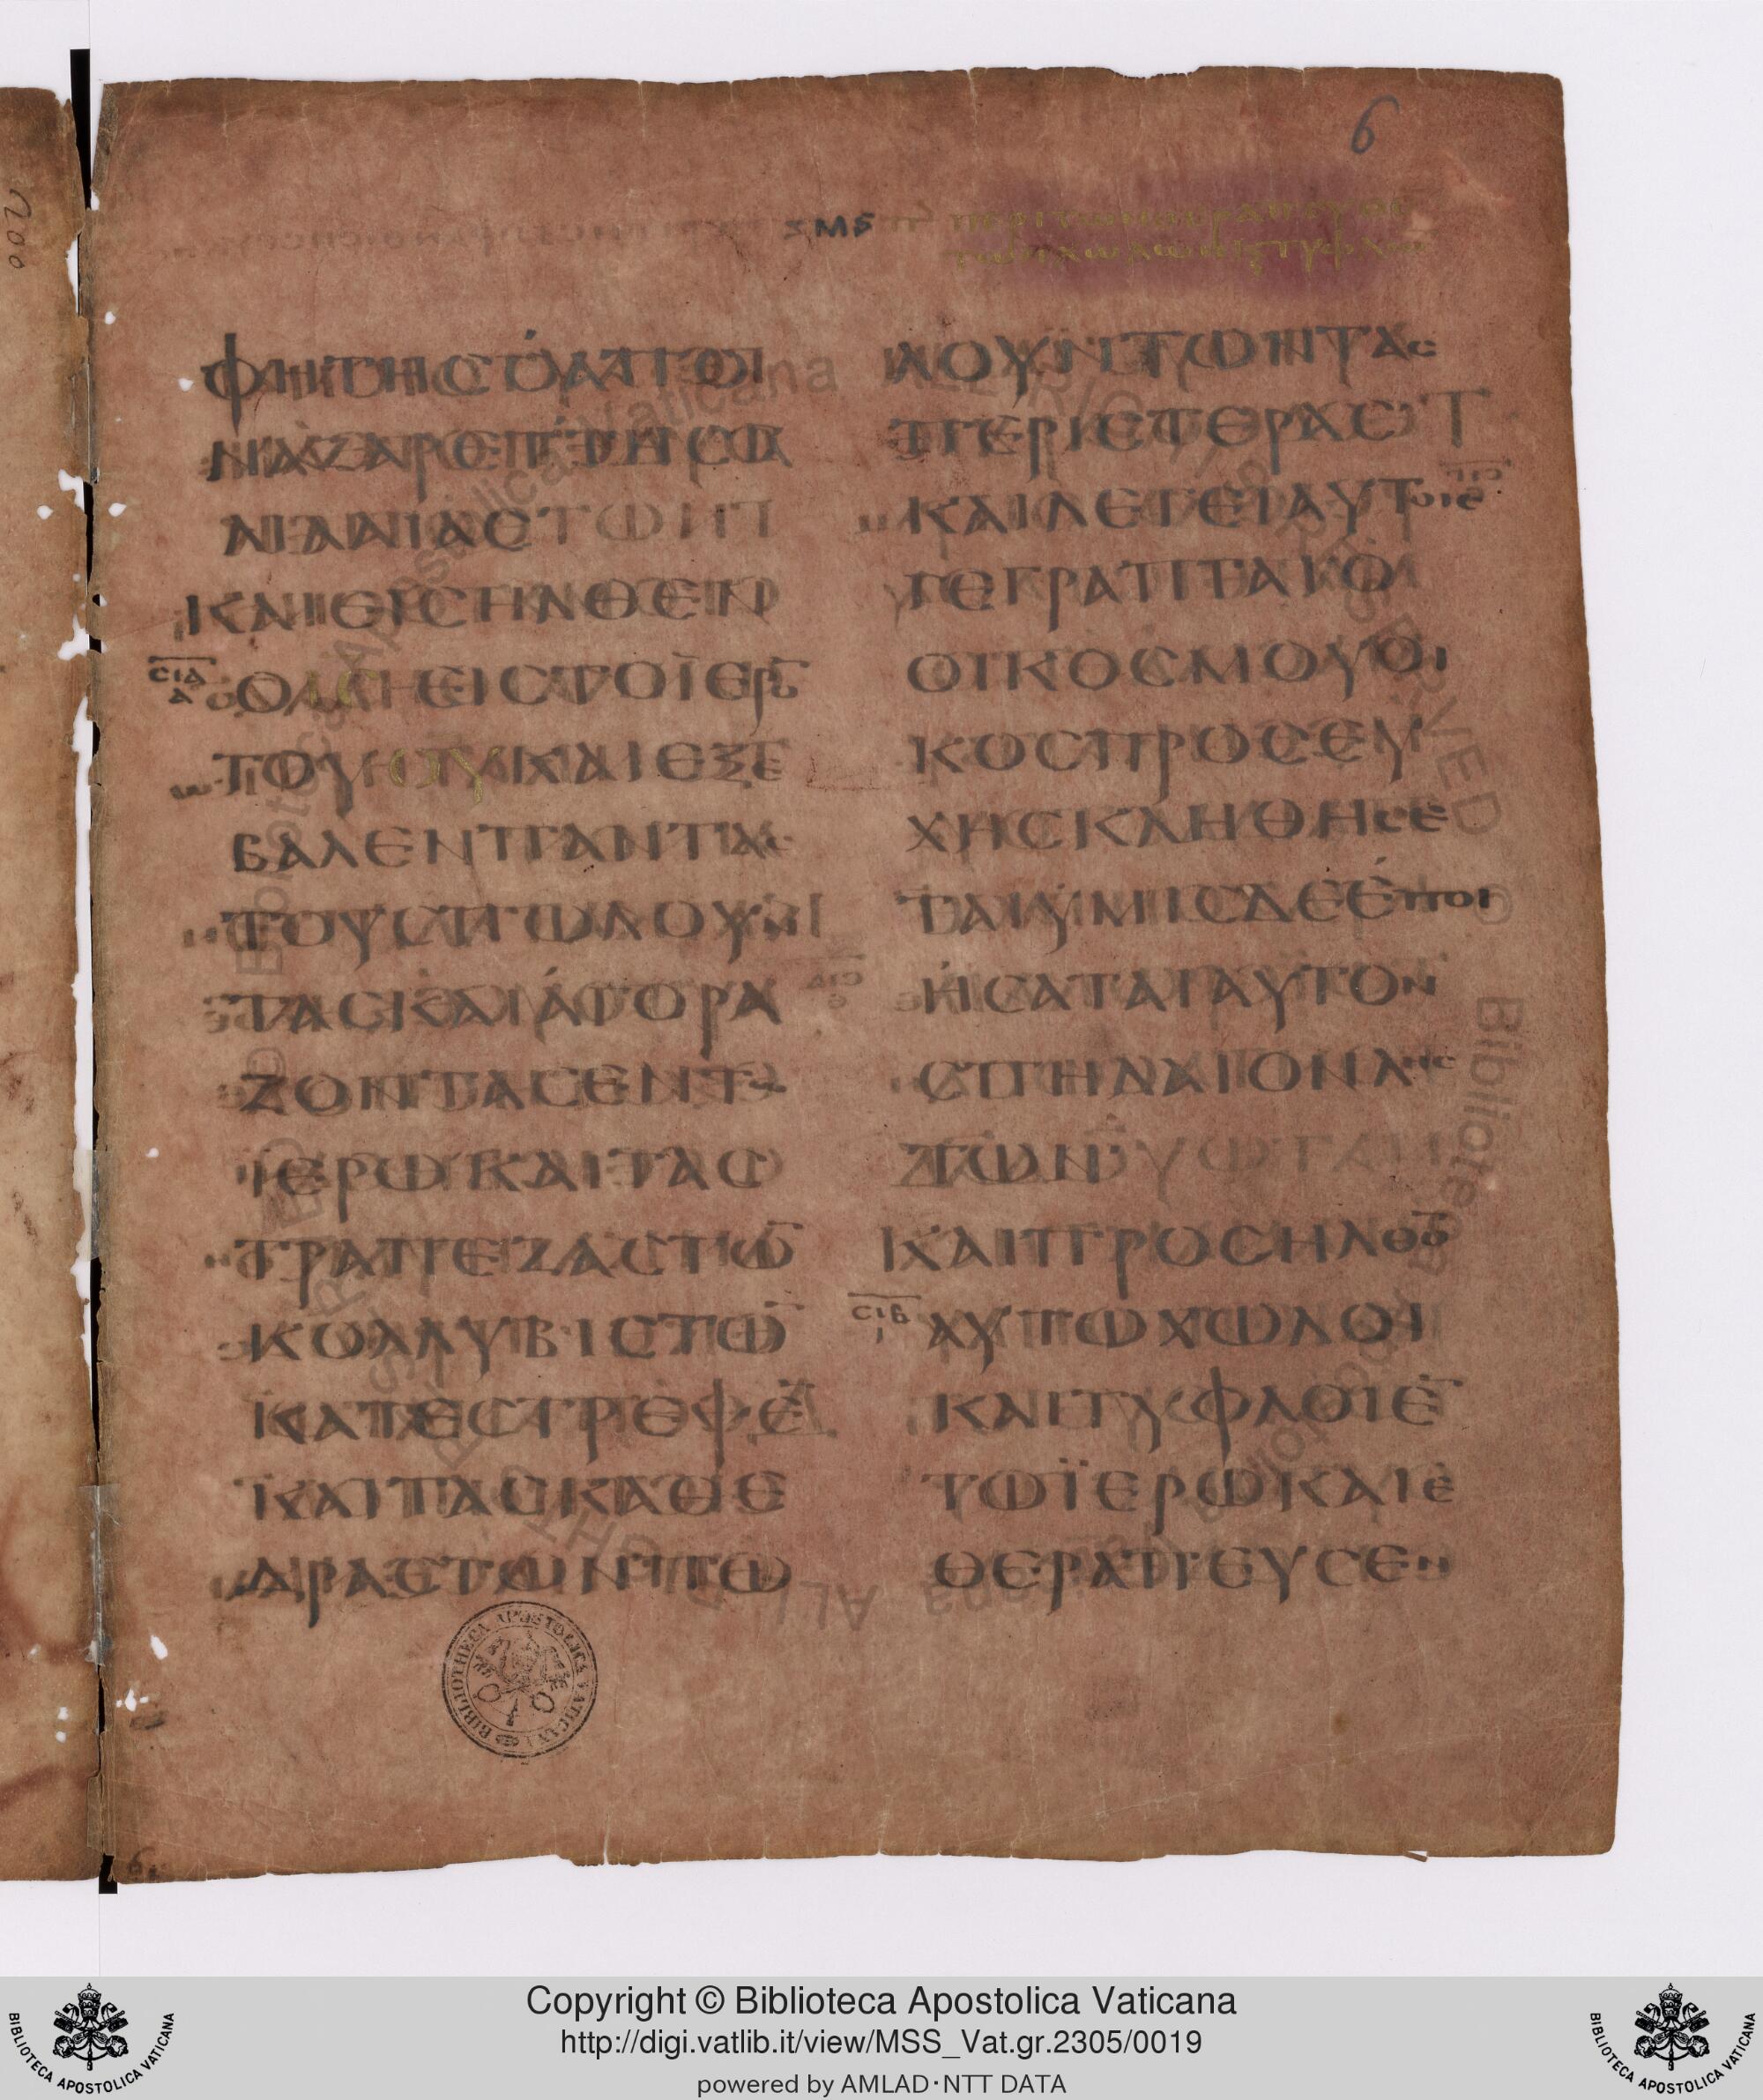 6
ΠΕΡΙ ΤΩΝ
ΤΩΝ ΧΩΛΩΝ Κς ΤΥΦΛΩ
ΦΗΤΗΣ Ο ΑΠΟ
ΝΑΖΑΡΕΤ ΤΗΣ ΓΑ
ΛΙΛΑΙΑΣ
ΚΑΙ ΕΙΣΗΛΘΕΝ
ΣΙΑ
Α
Ο ΙΣ ΕΙΣ ΤΟ ΪΕΡΟ̅
ΤΟΥ ΘΥ ΚΑΙ ΕΞΕ
ΒΑΛΕΝ ΠΑΝΤΑΣ
ΤΟΥΣ ΠΩΛΟΥΝ
ΤΑΣ ΚΑΙ ΑΓΟΡΑ
ΖΟΝΤΑΣ ΕΝ ΤΩ
ΪΕΡΩ ΚΑΙ ΤΑΣ
ΤΡΑΠΕΖΑΣ ΤΩ̅
ΚΟΛΛΥΒΙΣΤΩ̅
ΚΑΤΕΣΤΡΕΨΕ̅
ΚΑΙ ΤΑΣ ΚΑΘΕ
ΔΡΑΣ ΤΩΝ ΠΩ
ΛΟΥΝΤΩΝ ΤΑΣ
ΠΕΡΙΣΤΕΡΑΣ
ΚΑΙ ΛΕΓΕΙ ΑΥΤΟΙΣ
ΓΕΓΡΑΠΤΑΙ Ο
ΟΙΚΟΣ ΜΟΥ ΟΙ
ΚΟΣ ΠΡΟΣΕΥ
ΧΗΣ ΚΛΗΘΗΣΕ
ΤΑΙ ΥΜΙΣ ΔΕ ΕΠΟΙ
ΗΣΑΤΑΙ ΑΥΤΟΝ
ΣΠΗΛΑΙΟΝ ΛΗΣ
ΤΩΝ
ΚΑΙ ΠΡΟΣΗΛΘΟ̅
ΣΙΒ
Ι
ΑΥΤΩ ΧΩΛΟΙ
ΚΑΙ ΤΥΦΛΟΙ Ε̅
ΤΩ ΪΕΡΩ ΚΑΙ Ε
ΘΕΡΑΠΕΥΣΕΝ
BIBLIOTHECA APOSTOLICA VATICANA
6
Copyright © Biblioteca Apostolica Vaticana
http://digi.vatlib.it/view/MSS_Vat.gr.2305/0019
powered by AMLAD·NTT DATA
BIBLIOTECA APOSTOLICA VATICANA
BIBLIOTECA APOSTOLICA VATICANA